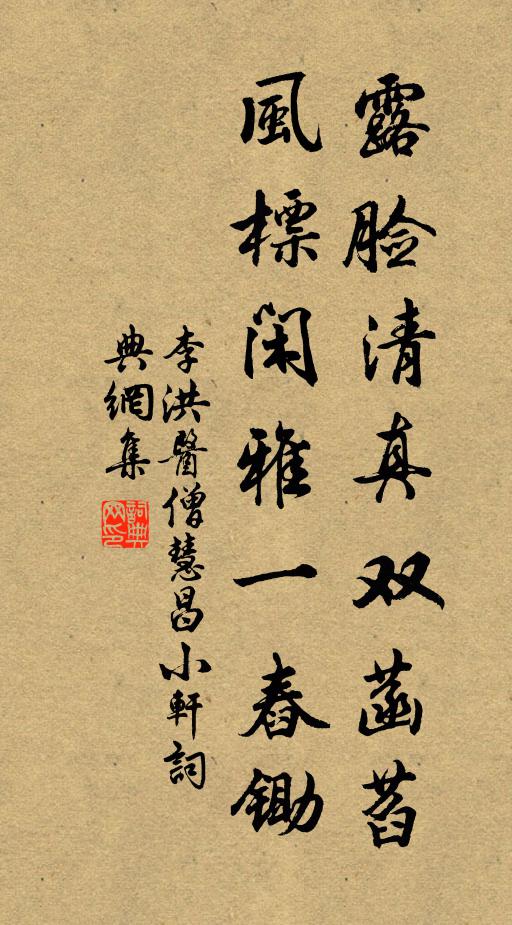 露脸清真双菡萏
風標闲雅一舂鋤
李洪醫僧慧昌小軒詞
典網集
詞典
网印